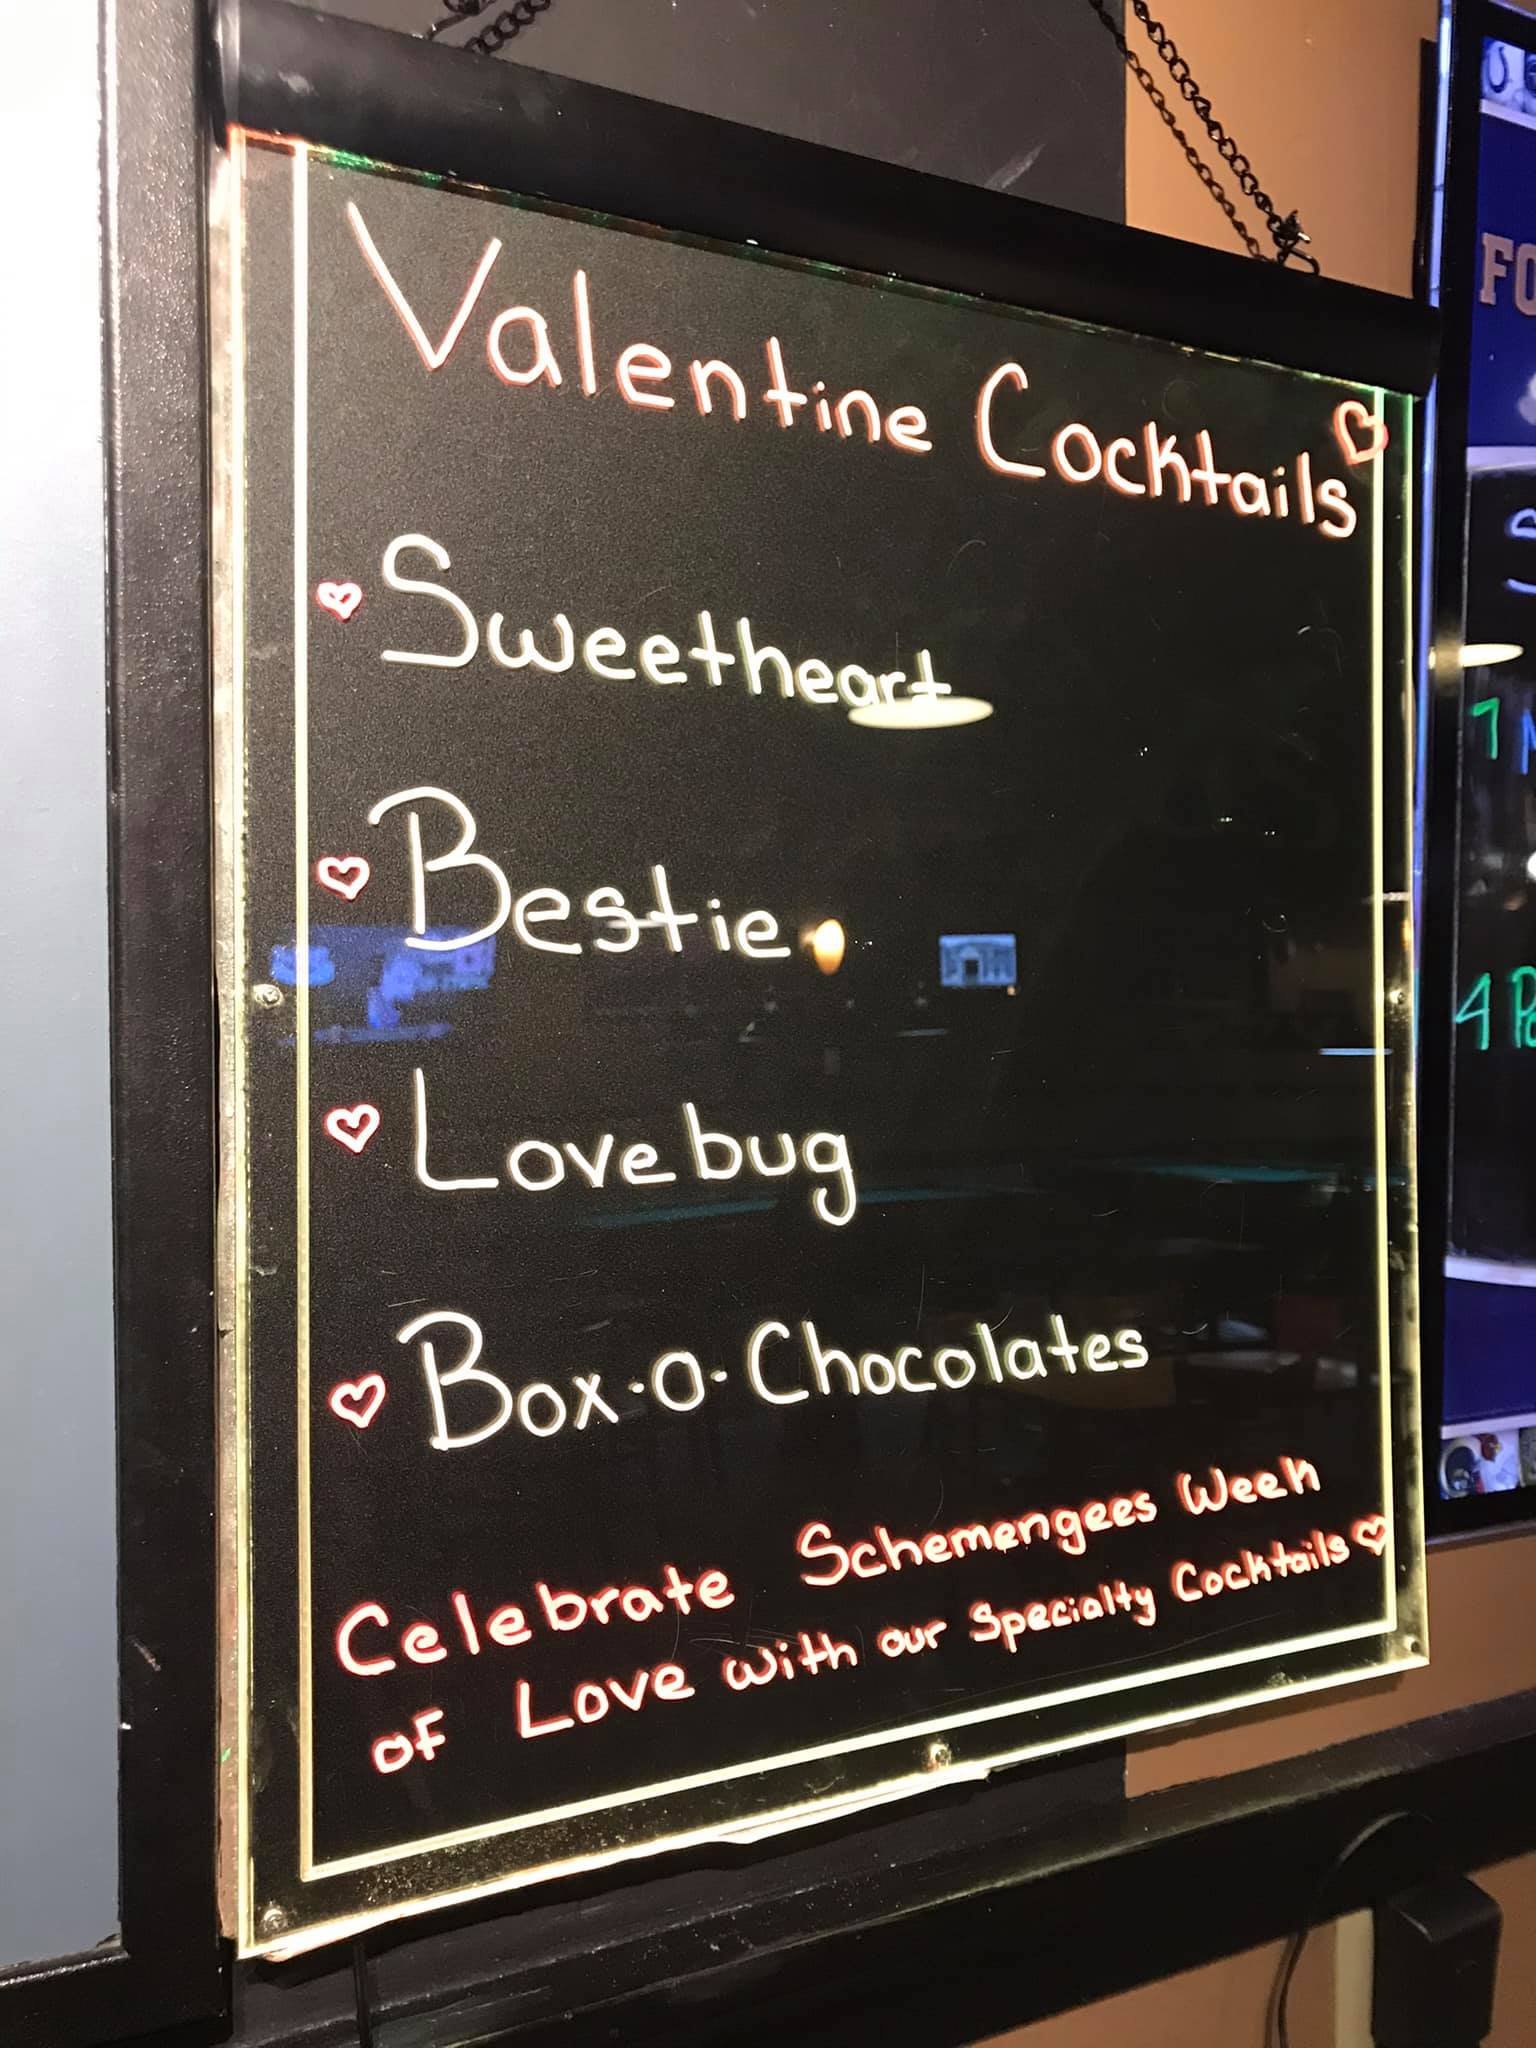 Valentine Cocktails
Sweetheart
Bestie
Lovebug
Box-O-Chocolates
Celebrate Schemengees Week
of Love with our Specialty Cocktails
FO
7
4